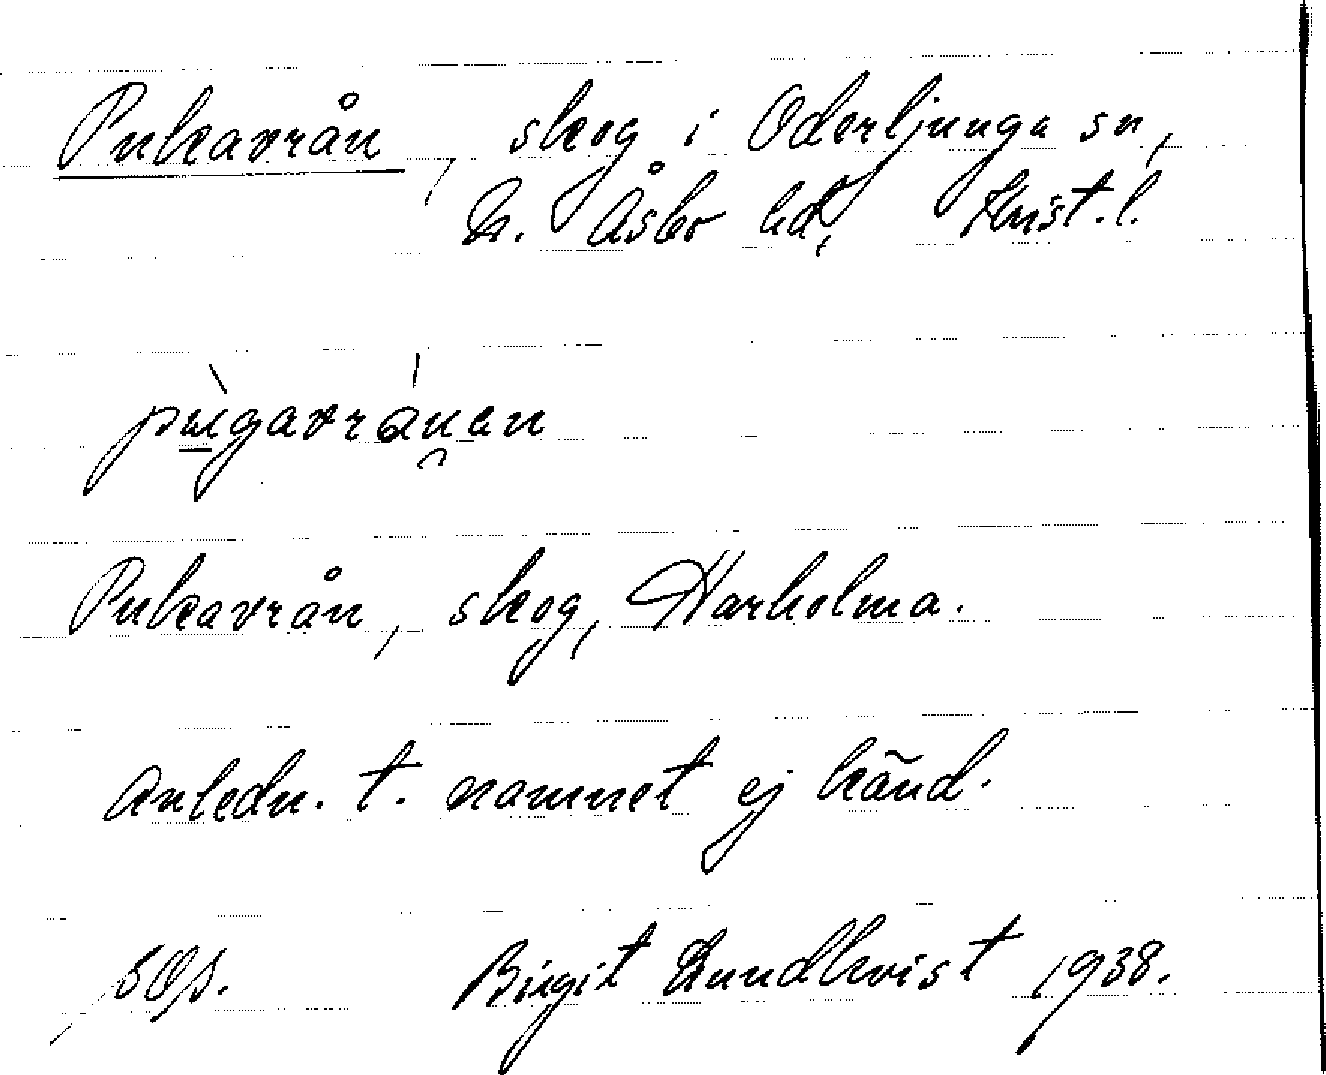 Pukavrån, skog i Oderljunga sn,
N. Åsbo hd, Krist. l.
pùgavránan
Pukavrån, skog, Harholma.
Anledn. t. namnet ej känd.
Birgit Lundkvist 1938.